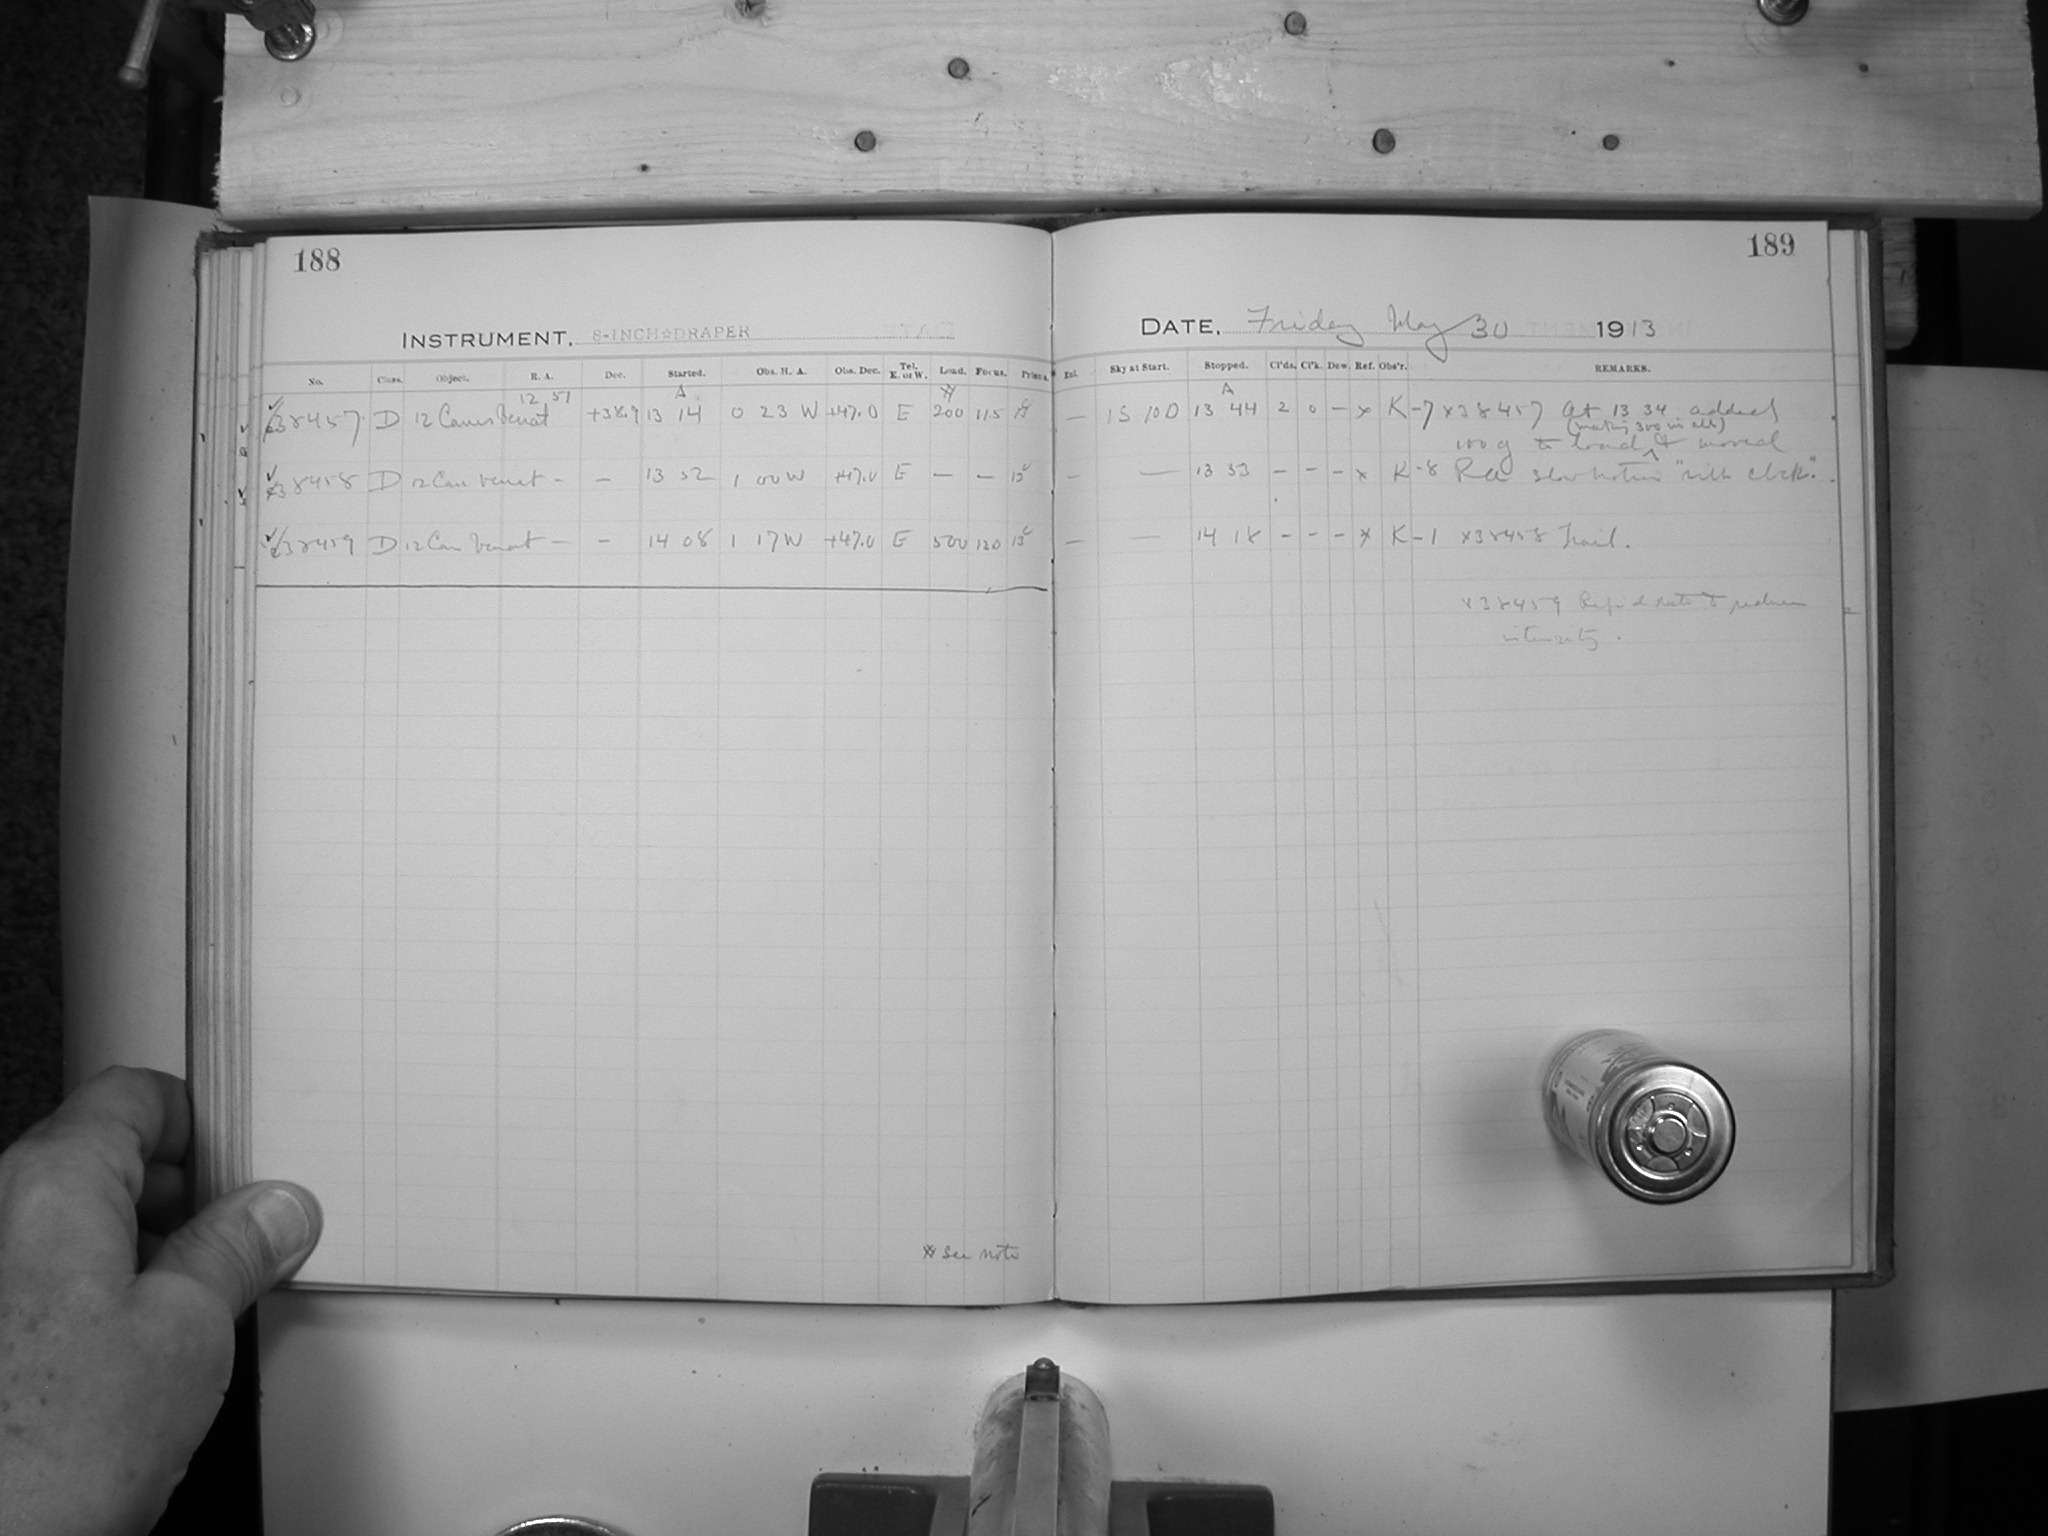 188
189
INSTRUMENT, 8-INCH DRAPER
DATE, Friday May 30 1913
No. Class. Object. R. A. Dec. Started. Obs. H. A. Obs. Dec. Tel. E. or W. Load. Focus. Prisms.
Enl. Sky at Start. Stopped. Cl'ds. Cl'k. Dew. Ref. Obs'r. REMARKS.
x38457 D 12 Canes Venat 12 51 +38.9 A 13 14 0 23 W +47.0 E 200 11.5
— 1S 10D A 13 44 2 0 — x K-7 x38457 At 13 34 added
(making 300 in all)
100 g to load & moved
x38458 D 12 Can Venat — — 13 52 1 00 W +47.0 E — — 13
— — 13 53 — — — x K-8 Rec slow motion "with clock".
x38459 D 12 Can Venat — — 14 08 1 17 W +47.0 E 500 12.0 13
— — 14 18 — — — x K-1 x38458 Trail.
x38459 Rapid rate to reduce
intensity.
See note